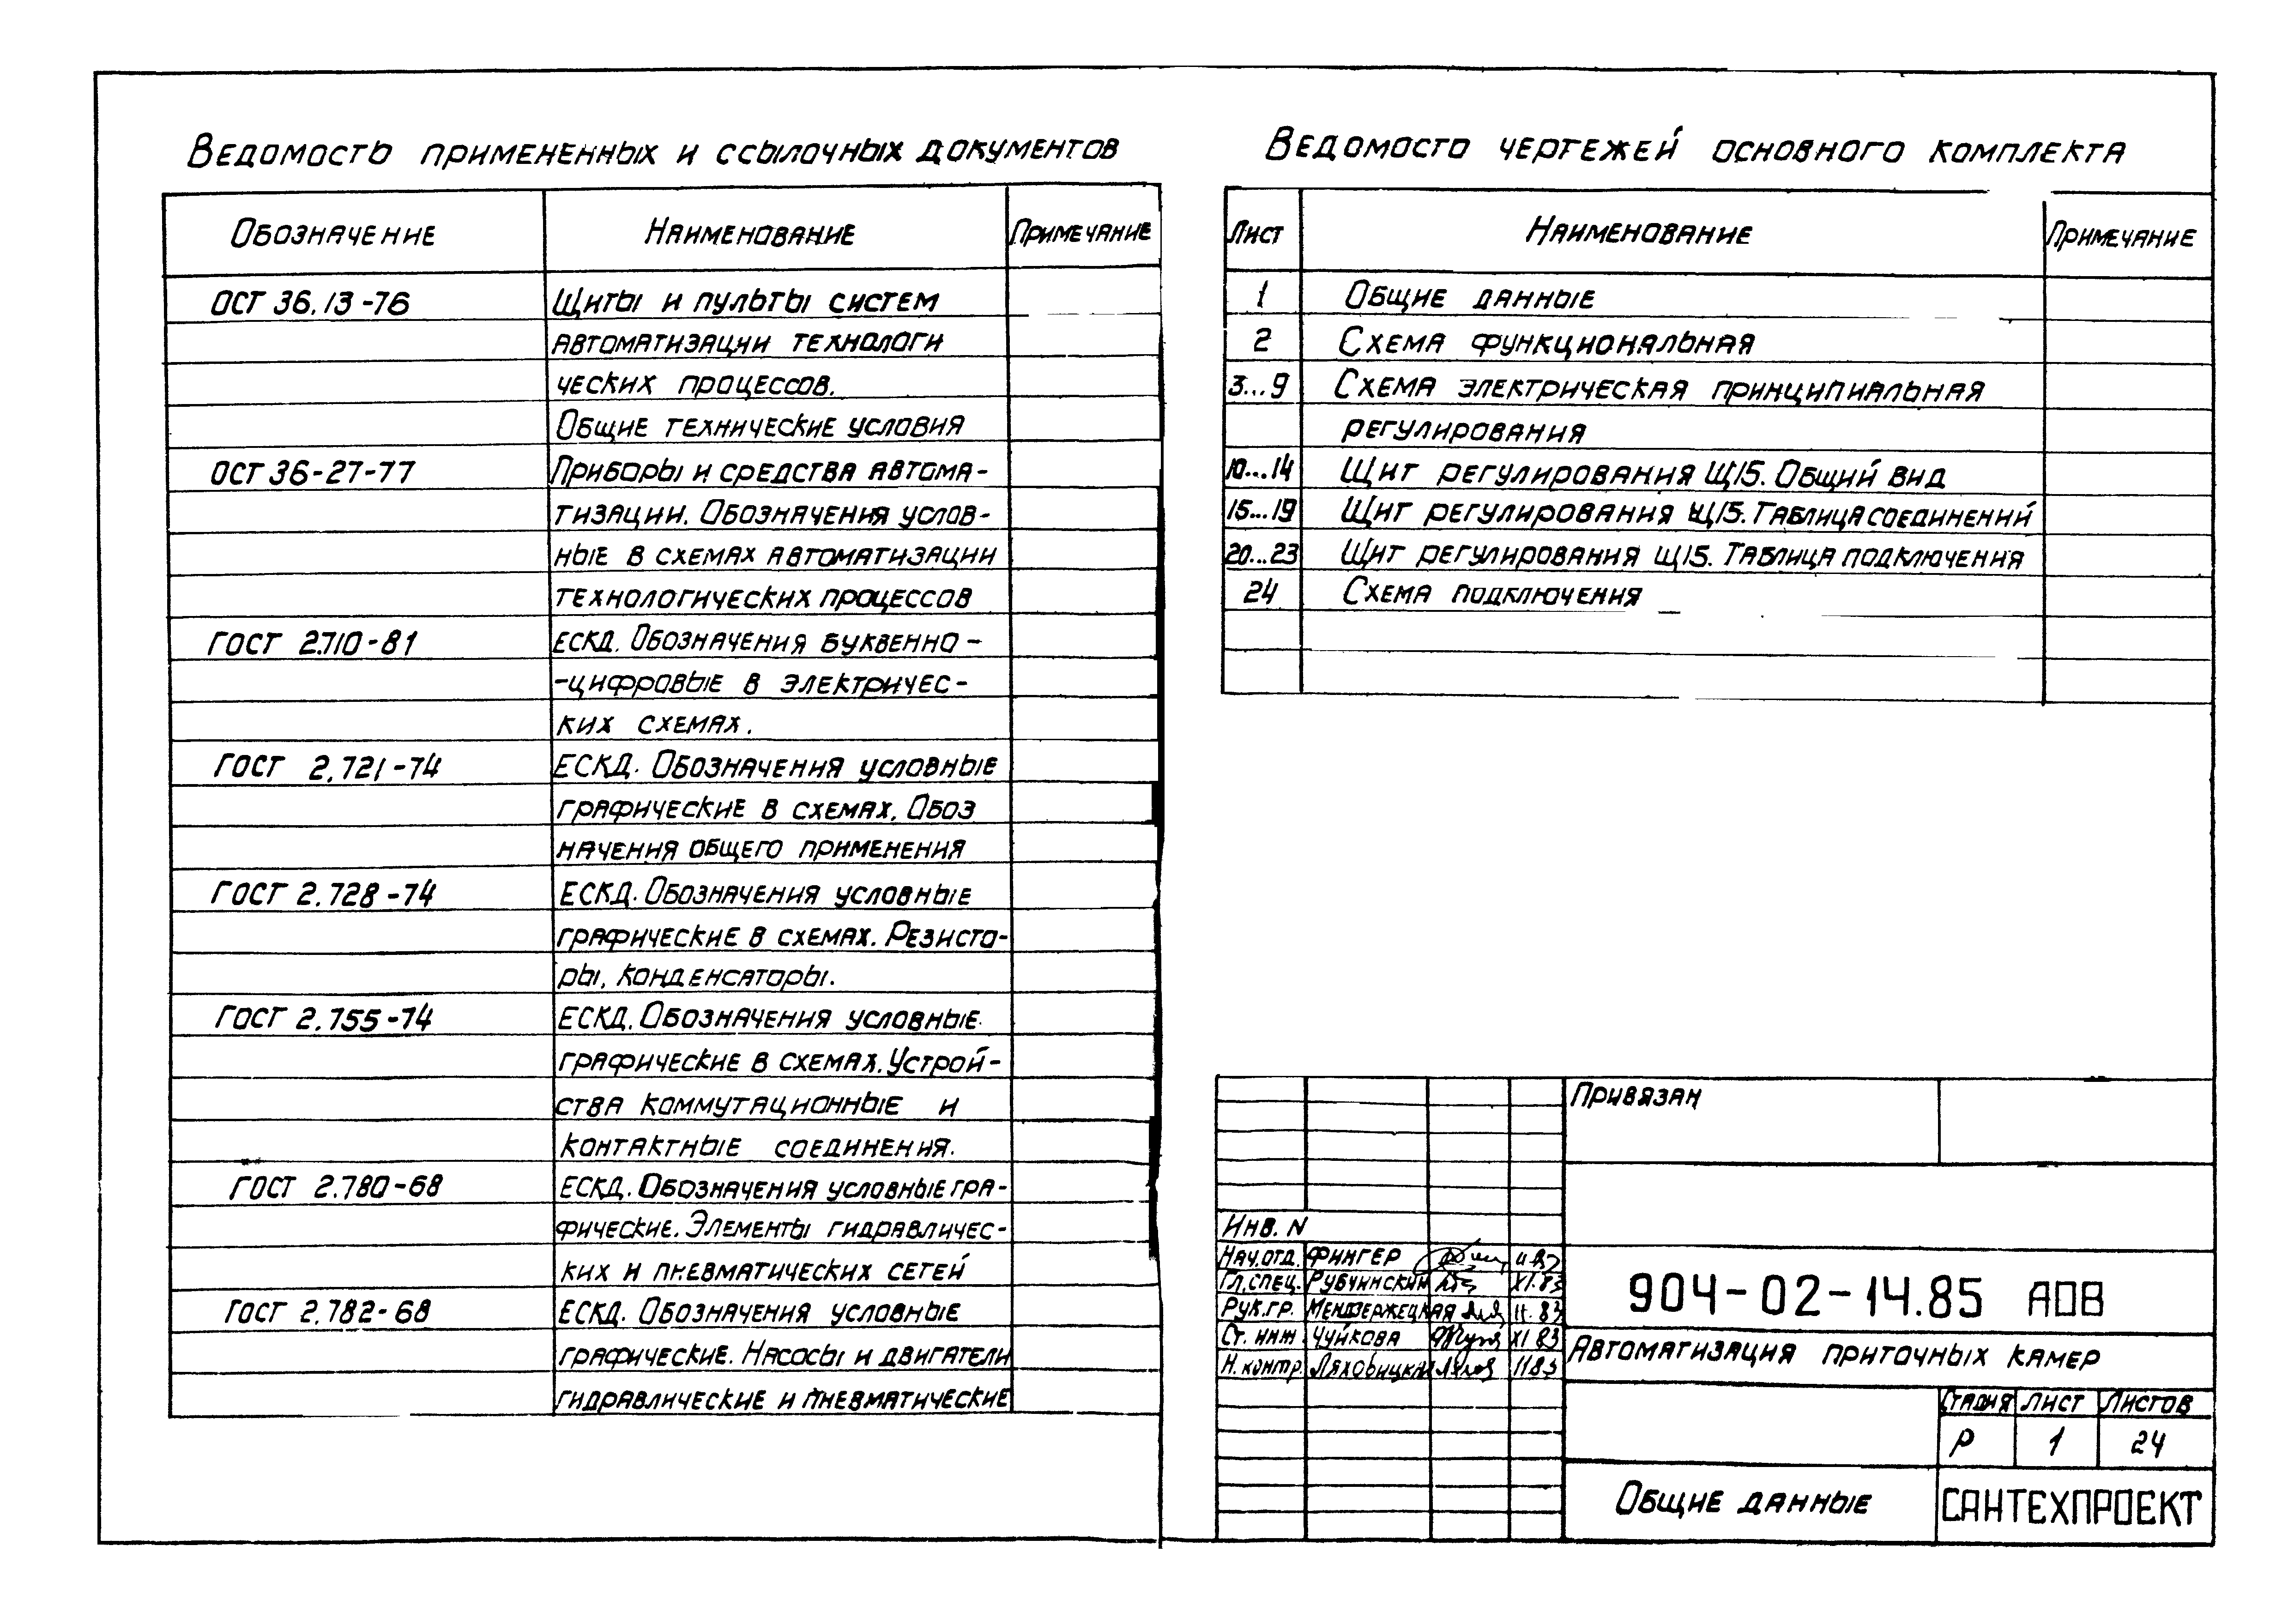 Ведомость примененных и ссылочных документов
Обозначение Наименование Примечание
ОСТ 36.13-76 Щиты и пульты систем
автоматизации технологи
ческих процессов.
Общие технические условия
ОСТ 36-27-77 Приборы и средства автома-
тизации. Обозначения услов-
ные в схемах автоматизации
технологических процессов
ГОСТ 2.710-81 ЕСКД. Обозначения буквенно-
-цифровые в электричес-
ких схемах.
ГОСТ 2.721-74 ЕСКД. Обозначения условные
графические в схемах. Обоз
начения общего применения
ГОСТ 2.728-74 ЕСКД. Обозначения условные
графические в схемах. Резисто-
ры, конденсаторы.
ГОСТ 2.755-74 ЕСКД. Обозначения условные
графические в схемах. Устрой-
ства коммутационные и
контактные соединения.
ГОСТ 2.780-68 ЕСКД. Обозначения условные гра-
фические. Элементы гидравличес-
ких и пневматических сетей
ГОСТ 2.782-68 ЕСКД. Обозначения условные
графические. Насосы и двигатели
гидравлические и пневматические
Ведомость чертежей основного комплекта
Лист Наименование Примечание
1 Общие данные
2 Схема функциональная
3...9 Схема электрическая принципиальная
регулирования
10...14 Щит регулирования Щ15. Общий вид
15...19 Щит регулирования Щ15. Таблица соединений
20...23 Щит регулирования Щ15. Таблица подключения
24 Схема подключения
Привязан
Инв. N
Нач.отд. Фингер
Гл.спец. Рубчинский XI.83
Рук.гр. Мендержецкая 11.83
Ст. инж Чуйкова XI 83
Н.контр. Ляховицкая 1183
904-02-14.85 АОВ
Автоматизация приточных камер
Стадия Лист Листов
Р 1 24
Общие данные
САНТЕХПРОЕКТ